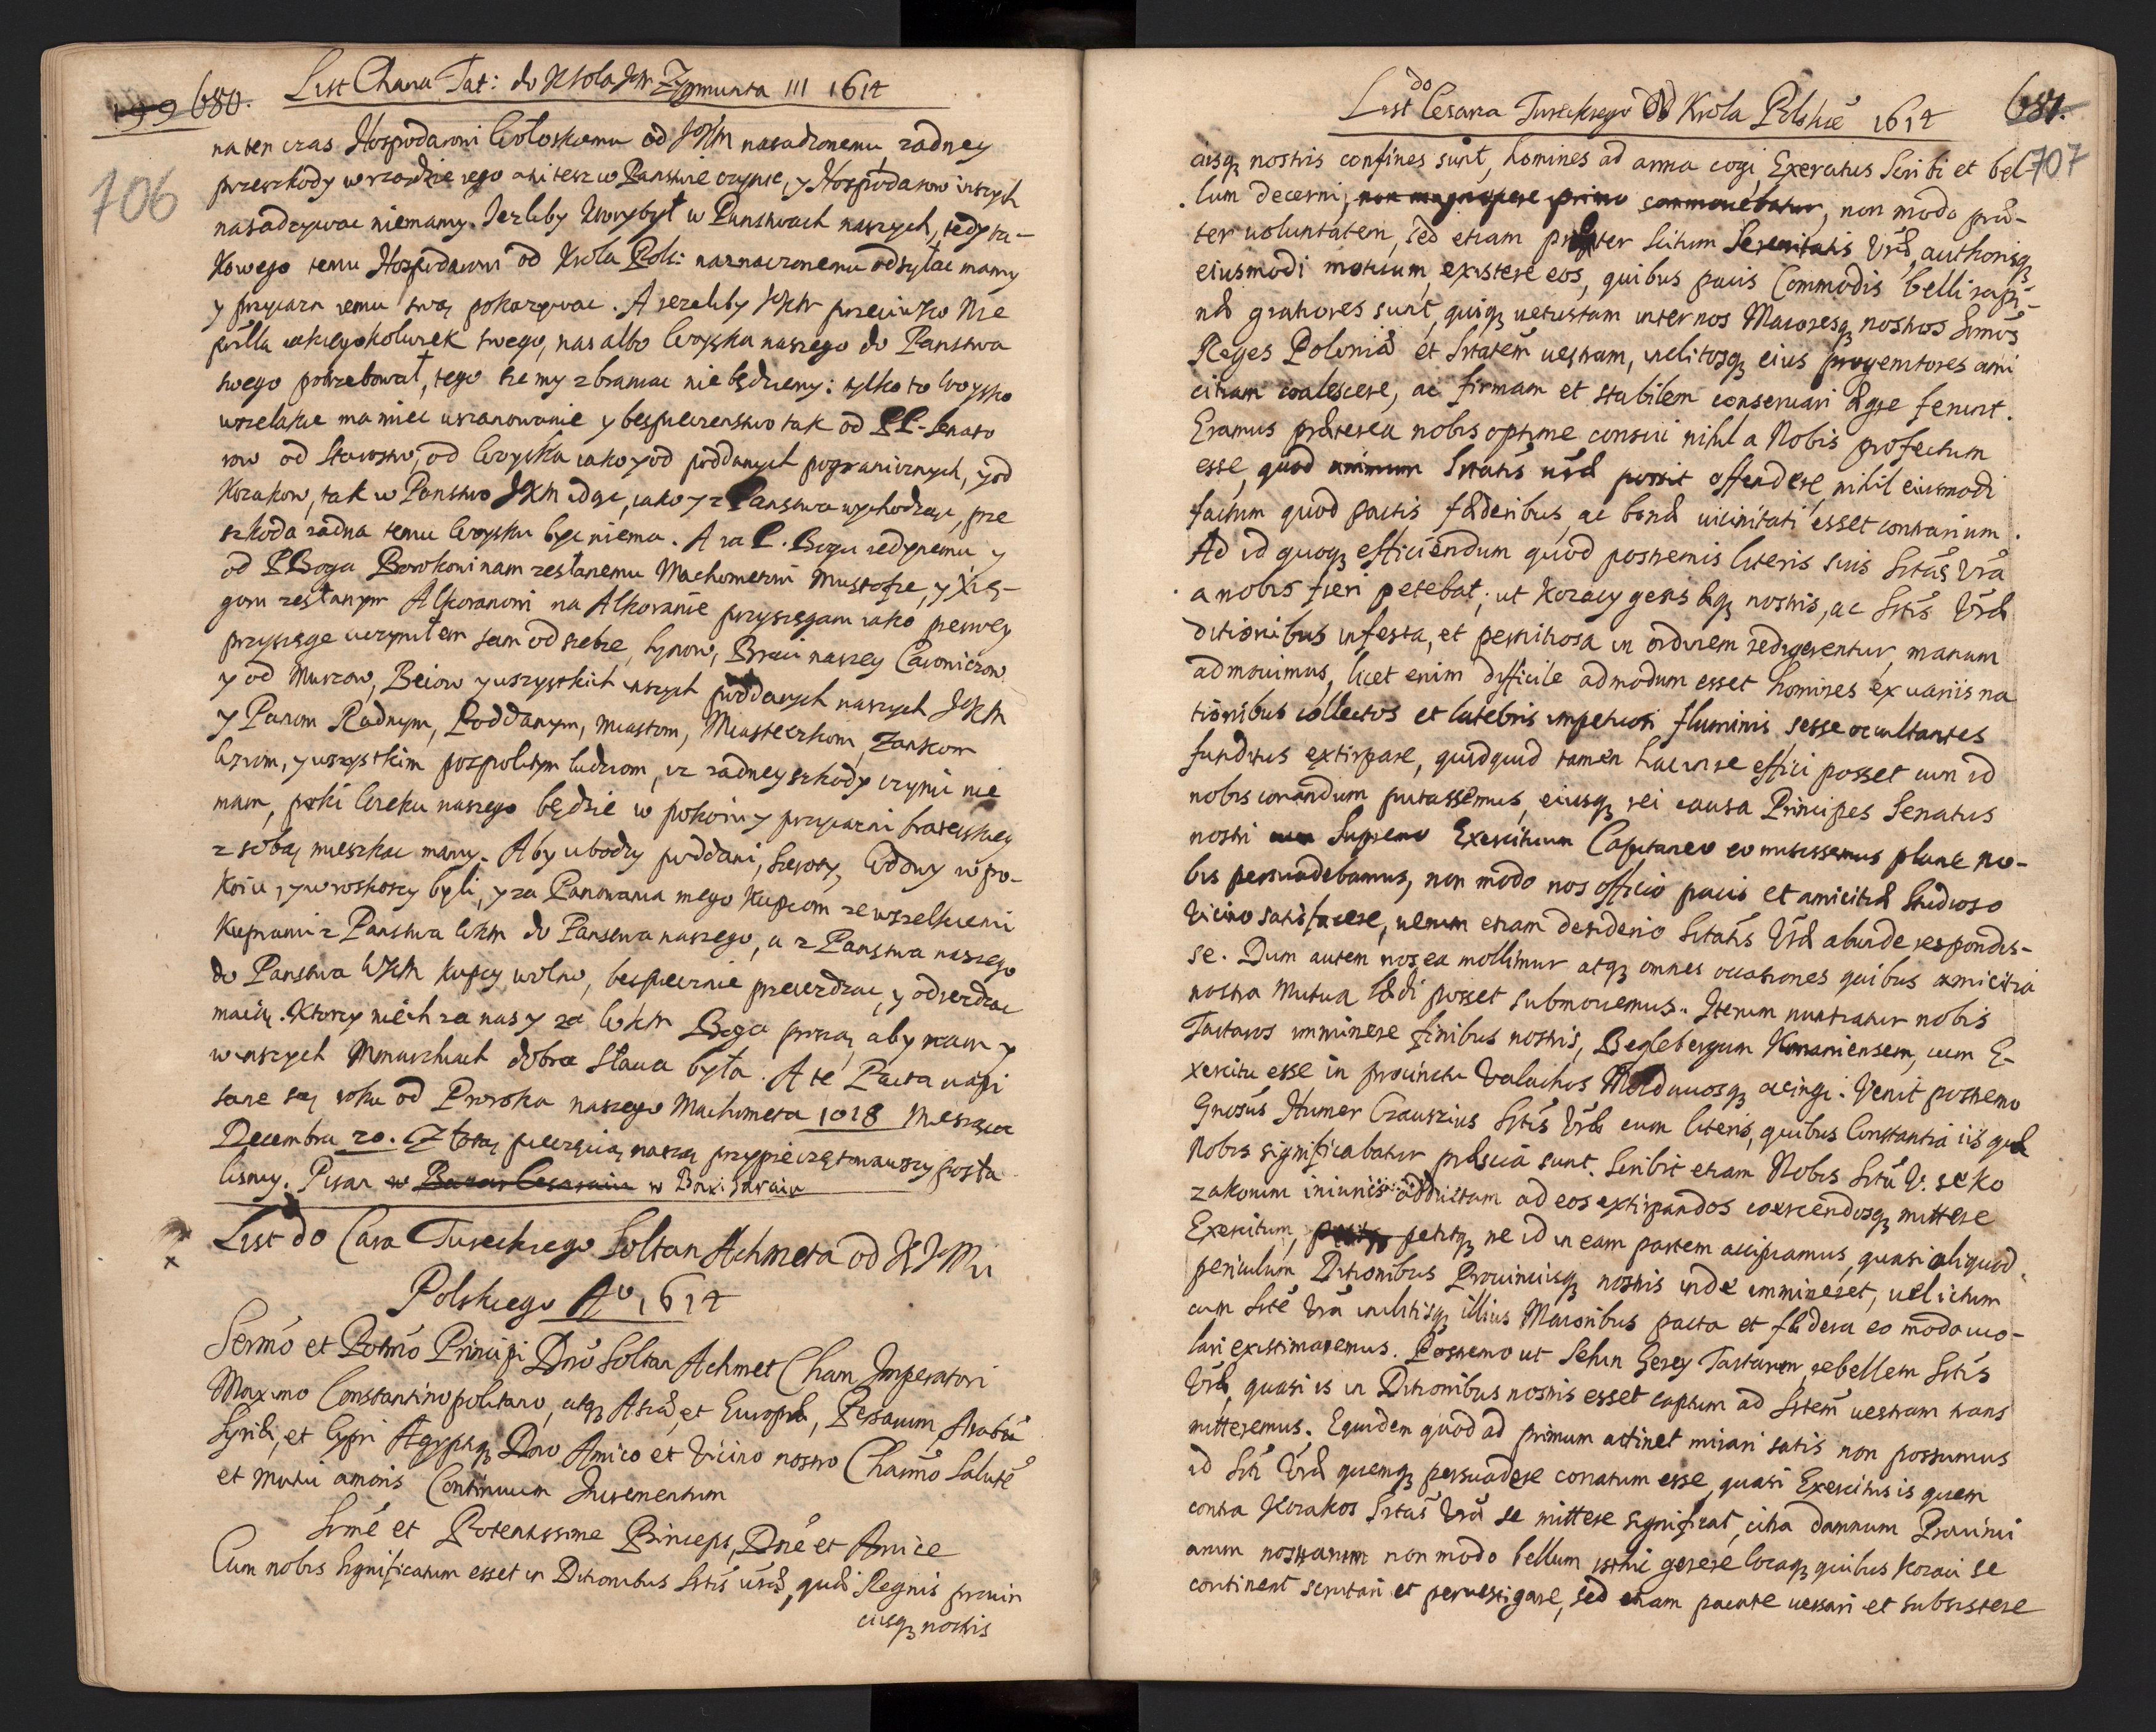 199 680. List Chana Tat: do Krola Jm Zygmunta III 1614
706
na ten czas Hospodarowi Wołoskiemu od JKM nasadzonemu, zadney
przeszkody w rządzie iego ani tesz w Panstwie czynic, y Hospodarow inszych
nasadzywac niemamy. Jezliby ktory był w Panstwach naszych, tedy ta-
kowego temu Hospodarowi od Krola Pols: naznaczonemu odsyłac mamy
y przyiazn iemu swą pokazywac. A iezeliby JKM przeciwko Nie
przyia iakiegokolwiek swego, nas albo Woyska naszego do Panstwa
swego potrzebował, tego sie my zbraniac nie będziemy: tylko to Woysko
wszelakie ma miec uszanowanie y bespieczenstwo tak od PP. Senato
row od Starostw, od Woyska iako y od poddanych pogranicznych, y od
Kozakow, tak w Panstwo JKM idąc, iako y z Panstwa wychodząc, prze
szkoda zadna temu Woysku byc niema. A za P. Bogu iedynemu y
od P Boga Prorokowi nam zesłanemu Machometowi Mustofie, y Xię-
gom zesłanym Alkoranowi na Alkoranie przysięgam iako pierwey
przysięgę uczyniłem sam od siebie, Synow, Braci naszey Carowiczow
y od Murzow, Beiow y wszystkich inszych poddanych naszych JKM
y Panom Radnym, Poddanym, Miastom, Miasteczkom, Zamkom
Wsiom, y wszystkim pospolitym ludziom, iz zadney szkody czynic nie
mam, poki Wieku naszego będzie w pokoiu y przyiazni braterskiey
z sobą mieszkac mamy. Aby ubodzy poddani, Sieroty, Wdowy w po-
koiu, y w roskoszy byli, y za Panowania mego Kupcom ze wszelkiemi
Kupiami z Panstwa WKM do Panstwa naszego, a z Panstwa naszego
do Panstwa WKM kupcy wolno, bespiecznie przeiezdzac, y odiezdzac
maią. Ktorzy niech za nas y za WKM Boga proszą, aby nam y
w inszych Monarchiach dobra Sława była. A te Pacta napi
sane są roku od Proroka naszego Machometa 1018 Miesiąca
Decembra 20. Złotą pieczęcią naszą przypieczętowawszy posła
lismy. Pisan w Bakci Saraiu
List do Cara Tureckiego Soltan Achmeta od KJMci
Polskiego Ao 1614
Sermo et Potmo Principi Dno Soltan Achmet Cham Imperatori
Maximo Constantinopolitano, atq3 Asiæ, et Europæ, Persarum Arabū
Syriæ, et Cypri Aegyptiq3 Dno Amico et Vicino nostro Charmo Salutē
et Mutui amoris Continuum Incrementum
Srme et Potentissime Princeps, Dne et Amice
Cum nobis significatum esset in Ditionibus Srtis uræ, quæ Regnis provin
ciisq3 nostris
List do Cesarza Tureckiego Od Krola Polskie 1614 681.
707
ciisq3 nostris confines sunt, homines ad arma cogi, Exercitus Scribi et bel-
lum decerni, non magnopere primo commouebatur, non modo præ-
ter uoluntatem, sed etiam præter Scitum Serenitatis Vræ, authorisq3
eiusmodi motuum, existere eos, quibus pacis Commodis belli rapi-
næ gratiores sunt, quiq3 uetustam inter nos Maioresq3 nostros Srmos
Reges Poloniæ et Srtatem uestram, inclitosq3 eius progenitores ami
citiam coalescere, ac firmam et stabilem conseruari ægre ferunt.
Eramus præterea nobis optime conscii nihil a Nobis profectum
esse, quod animum Srtatis uræ possit offendere, nihil eiusmodi
factum quod pactis fœderibus, ac bonæ uicinitati esset contrarium.
Ad id quoq3 efficiendum quod postremis literis suis Srtas Vra
a nobis fieri petebat, ut Kozacy gens hq3 nostris, ac Srtis Vræ
ditionibus infesta, et perniciosa in ordinem redigerentur, manum
admouimus, licet enim difficile admodum esset homines ex variis na
tionibus collectos et latebris impetuosi fluminis, sesse occultantes
funditus extirpare, quidquid tamen hac in re effici posset cum id
nobis conandum putassemus, eiusq3 rei causa Principes Senatus
nostri cum Supremo Exercituum Capitaneo eo misissemus plane no-
bis persuadebamus, non modo nos officio pacis et amicitiæ Studioso
Vicino satisfacere, uerum etiam desiderio Srtatis Vræ abunde respondis-
se. Dum autem nos ea mollimur atq3 omnes occasiones quibus amicitia
nostra Mutua lædi posset submouemus. Iterum nuntiatur nobis
Tartaros imminere finibus nostris, Beglebergum Kmaniensem, cum E-
xercitu esse in procinctu Valachos Moldauosq3 accingi. Venit postremo
Gnosus Humer Czauszius Srtis Vræ cum literis, quibus Constantia iis quæ
Nobis significabatur præscia sunt. Scribit etiam Nobis Srtas V. se ko
zakorum iniuriis adductam ad eos extirpandos coercendosq3 mittere
Exercitum, petitq3 ne id in eam partem accipiamus, quasi aliquod
periculum Ditionibus Prouinciisq3 nostris inde immineret, uel ictum
cum Srte Vra inclitisq3 illius Maioribus pacta et fœdera eo modo uio-
lari existimaremus. Postremo ut Sehin Gerey Tartarum, rebellem Srtis
Vræ, quasi is in Ditionibus nostris esset captum ad Srtem uestram trans
mitteremus. Equidem quod ad primum attinet mirari satis non possumus
id Srti Vræ quemq3 persuadere conatum esse, quasi Exercitus is quem
contra Kozakos Srtas Vra se mittere significat, citra damnum Prouinci
arum nostrarum non modo bellum isthic gerere locaq3 quibus Kozaci se
continent scrutari et peruestigare, sed etiam pacate uersari et subsistere